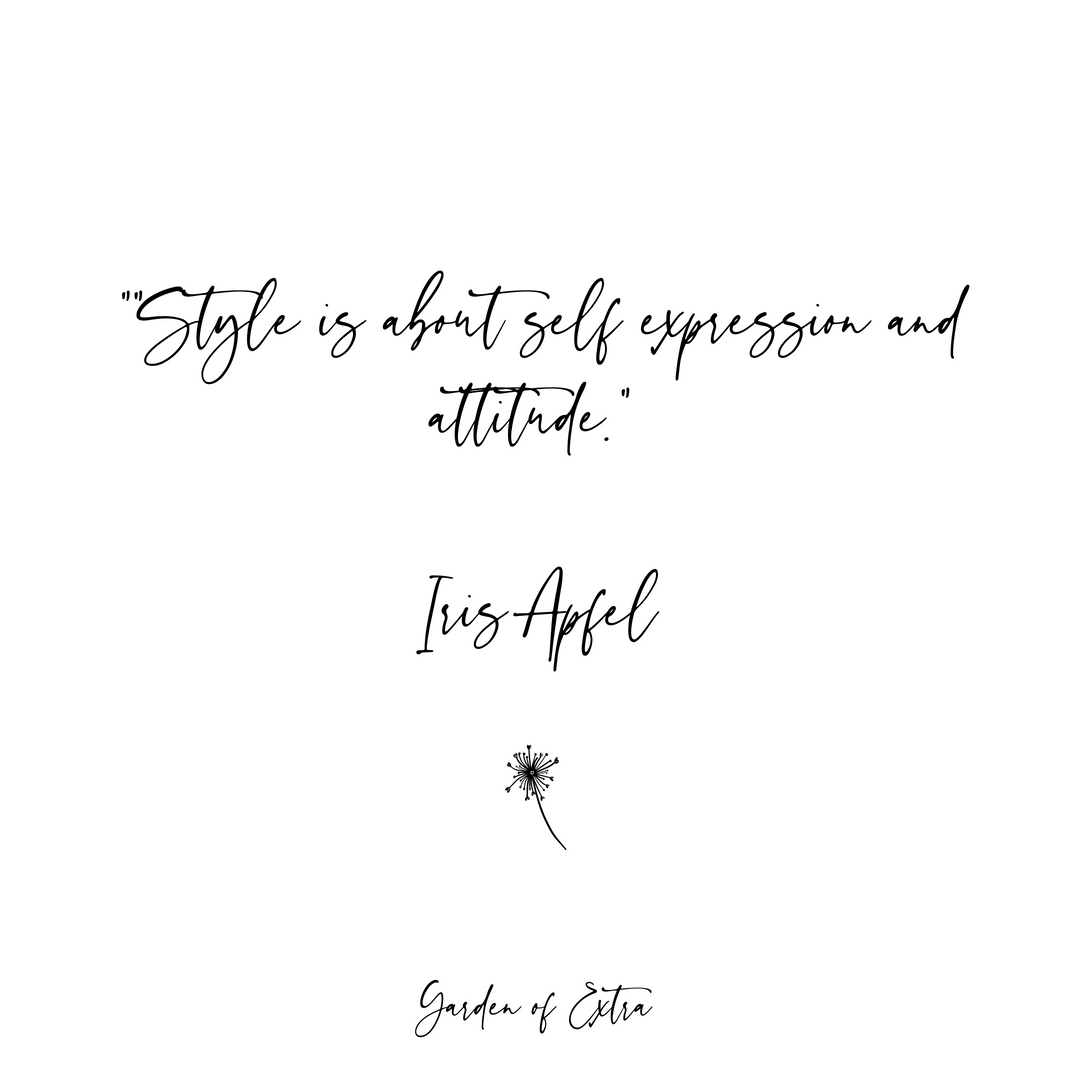 ""Style is about self expression and
attitude."
Iris Apfel
Garden of Extra